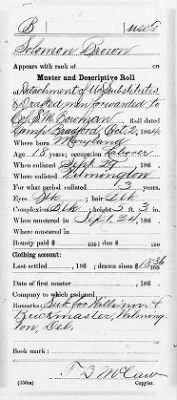 B | U.S.C.T.
Solomon Brown
Appears with rank of
Muster and Descriptive Roll
of a Detachment of U.S. Substitutes
& Drafted men forwarded to
S. M. Bowman Roll dated
Camp Bradford, Oct 2, 1864.
Where born Maryland
Age 18 years; occupation Laborer
When enlisted Sept 29, 186
Where enlisted Wilmington
For what period enlisted 3 years.
Eyes Blk; hair Blk
Complexion Blk; height 5 ft. 3 in.
When mustered in Sept 24, 186
Where mustered in
Bounty paid $ 100; due $ 100
Clothing account:
Last settled , 186 ; drawn since $ 100
Date of first muster , 186 .
Company to which assigned
Remarks: Sub for William H
Buckmaster, Wilming
ton, Del.
Book mark:
(356m) Copyist.